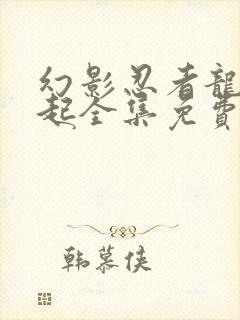 幻影忍者龍
起全集免費
韩慕侠